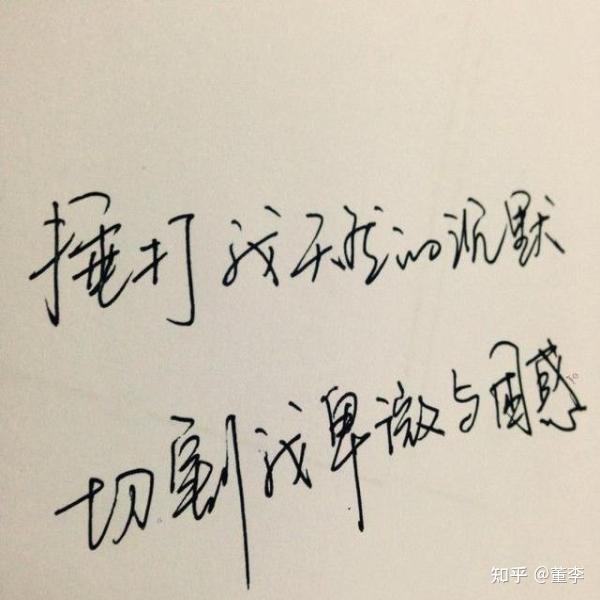 捶打我天然的沉默
切割我卑微与困惑
知乎 @董李